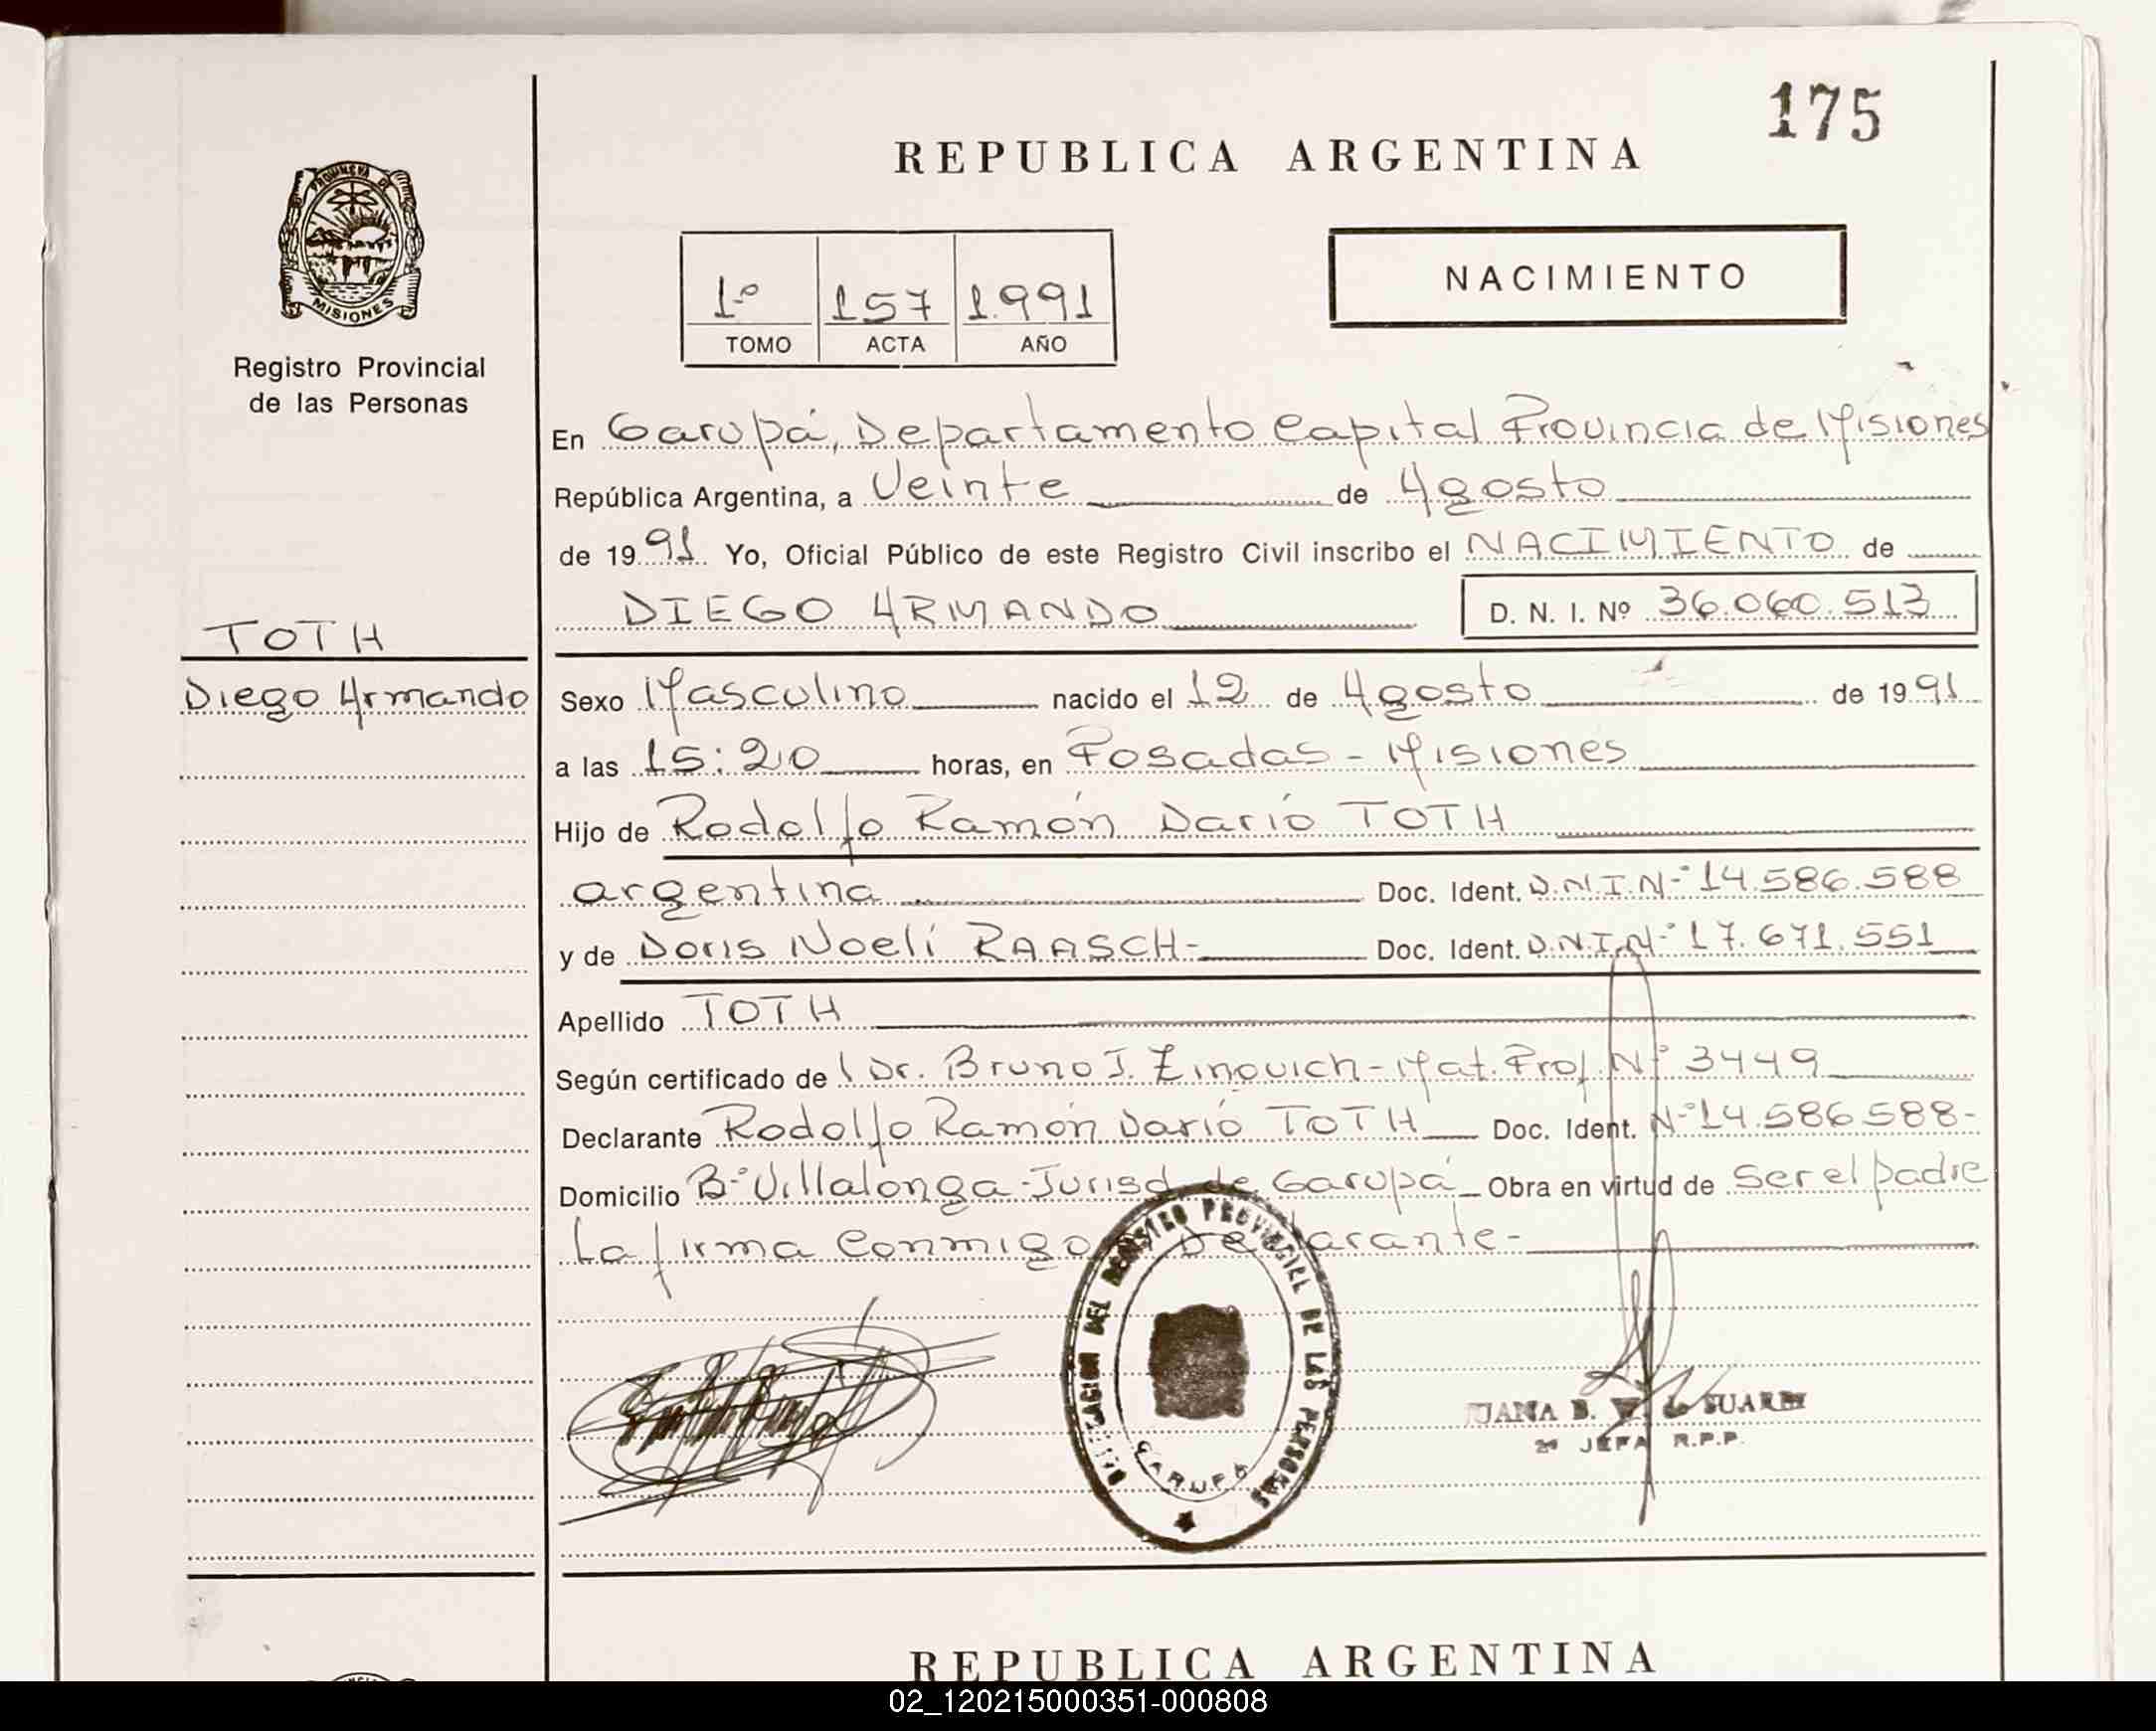 175
REPUBLICA ARGENTINA
PROVINCIA DE
MISIONES
Registro Provincial
de las Personas
1º 157 1.991
TOMO ACTA AÑO
NACIMIENTO
En Garupá, Departamento Capital Provincia de Misiones
República Argentina, a Veinte de Agosto
de 1991 Yo, Oficial Público de este Registro Civil inscribo el NACIMIENTO de
DIEGO ARMANDO D. N. I. Nº 36.060.513
TOTH
Diego Armando
Sexo Masculino nacido el 12 de Agosto de 1991
a las 15:20 horas, en Posadas - Misiones
Hijo de Rodolfo Ramón Darío TOTH
argentina Doc. Ident. D.N.I.Nº 14.586.588
y de Doris Noelí RAASCH- Doc. Ident. D.N.I.Nº 17.671.551
Apellido TOTH
Según certificado de l Dr. Bruno J. Zinovich - Mat. Prof. Nº 3449
Declarante Rodolfo Ramón Darío TOTH Doc. Ident. Nº 14.586.588-
Domicilio Bº Villalonga - Jurisd. de Garupá Obra en virtud de Ser el padre
La firma Conmigo
DELEGACION DEL REGISTRO PROVINCIAL DE LAS PERSONAS
GARUPÁ
JUANA B. SUARDI
2º JEFA R.P.P.
REPUBLICA ARGENTINA
02_120215000351-000808